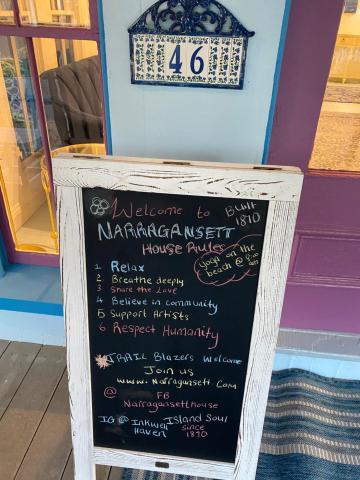 46
Welcome to
BUilt
1870
NARRAGANSETT
House Rules
Yoga on the
beach @ 8:00
am
1 Relax
2. Breathe deeply
3 Share the Love
4 Believe in community
5 Support Artists
6 Respect Humanity
TRAIL Blazers Welcome
Join us
www.Narragansett.Com
@ FB
Narragansetthouse
IG @ Inkwell
Haven
Island Soul
since
1870